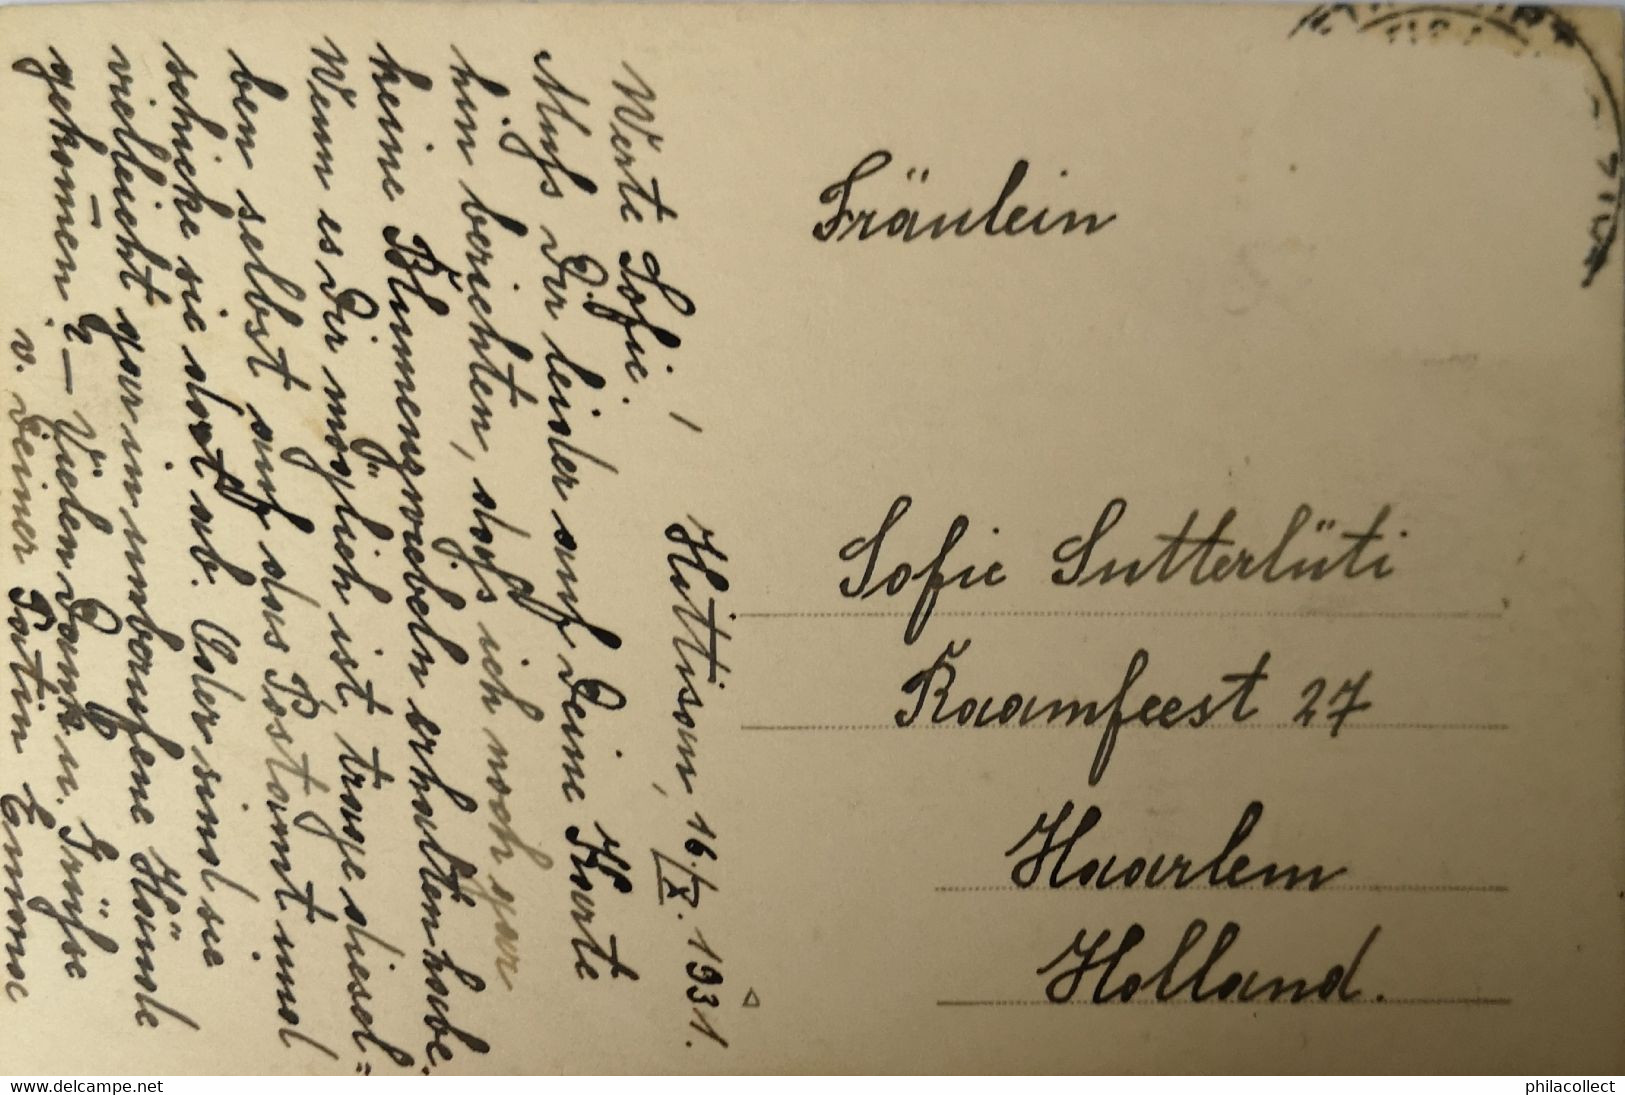 Hittisau, 16./X. 1931.
Werte Sofie!
Muß Dir leider auf Deine Karte
hin berichten, daß ich noch gar
keine Blumenzwiebeln erhalten habe.
Wenn es Dir möglich ist trage diesel=
ben selbst auf das Postamt und
schicke sie dort ab. Oder sind sie
vielleicht gar in unberufene Hände
gekommen? – Vielen Dank u. Grüße
v. Deiner Patin Emma
Fräulein
Sofie Sutterlüti
Raamfeest 27
Haarlem
Holland.
www.delcampe.net
philacollect